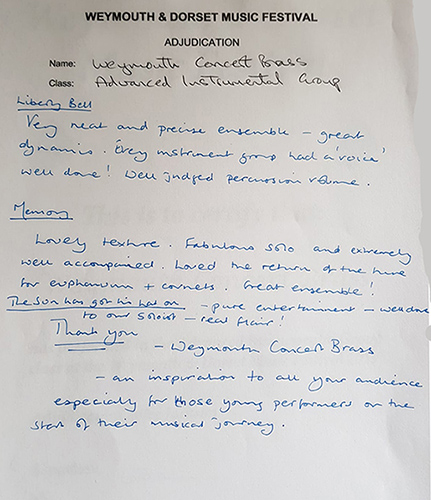 WEYMOUTH & DORSET MUSIC FESTIVAL
ADJUDICATION
Name: Weymouth Concert Brass
Class: Advanced Instrumental Group
Liberty Bell
Very neat and precise ensemble – great
dynamics. Every instrument group had a 'voice'
well done! Well judged percussion volume.
Memory
Lovely texture. Fabulous solo and extremely
well accompanied. Loved the return of the tune
for euphonium + cornets. Great ensemble!
The Sun has got his hat on – pure entertainment – well done
to our soloist – real flair!
Thank you
– Weymouth Concert Brass
– an inspiration to all your audience
especially for those young performers on the
start of their musical journey.